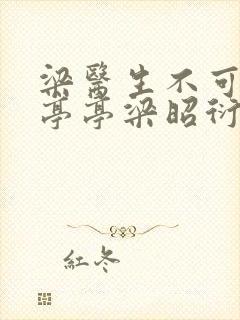 梁醫生不可
亭亭梁昭衍
紅冬